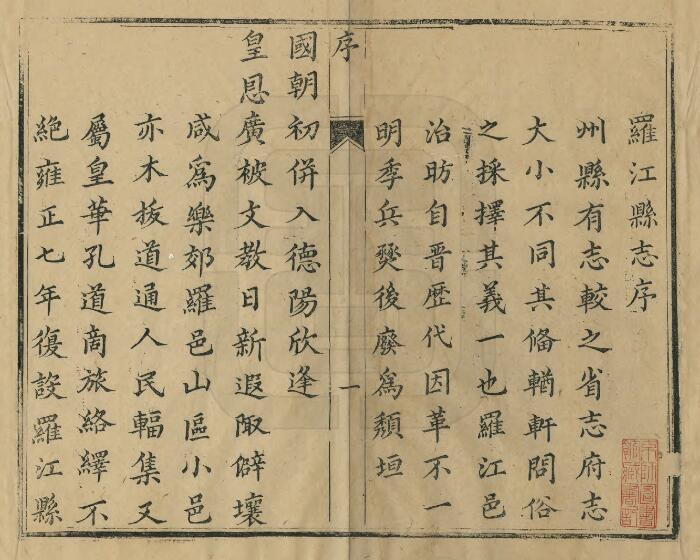 羅江縣志序
州縣有志較之省志府志
大小不同其俻輶軒問俗
之採擇其義一也羅江邑
治昉自晋歴代因革不一
明季兵燹後廢為頽垣
序
一
國朝初併入德陽欣逢
皇恩廣被文教日新遐陬僻壤
咸為樂郊羅邑山區小邑
亦木拔道通人民輻集又
屬皇華孔道商旅絡繹不
絶雍正七年復設羅江縣